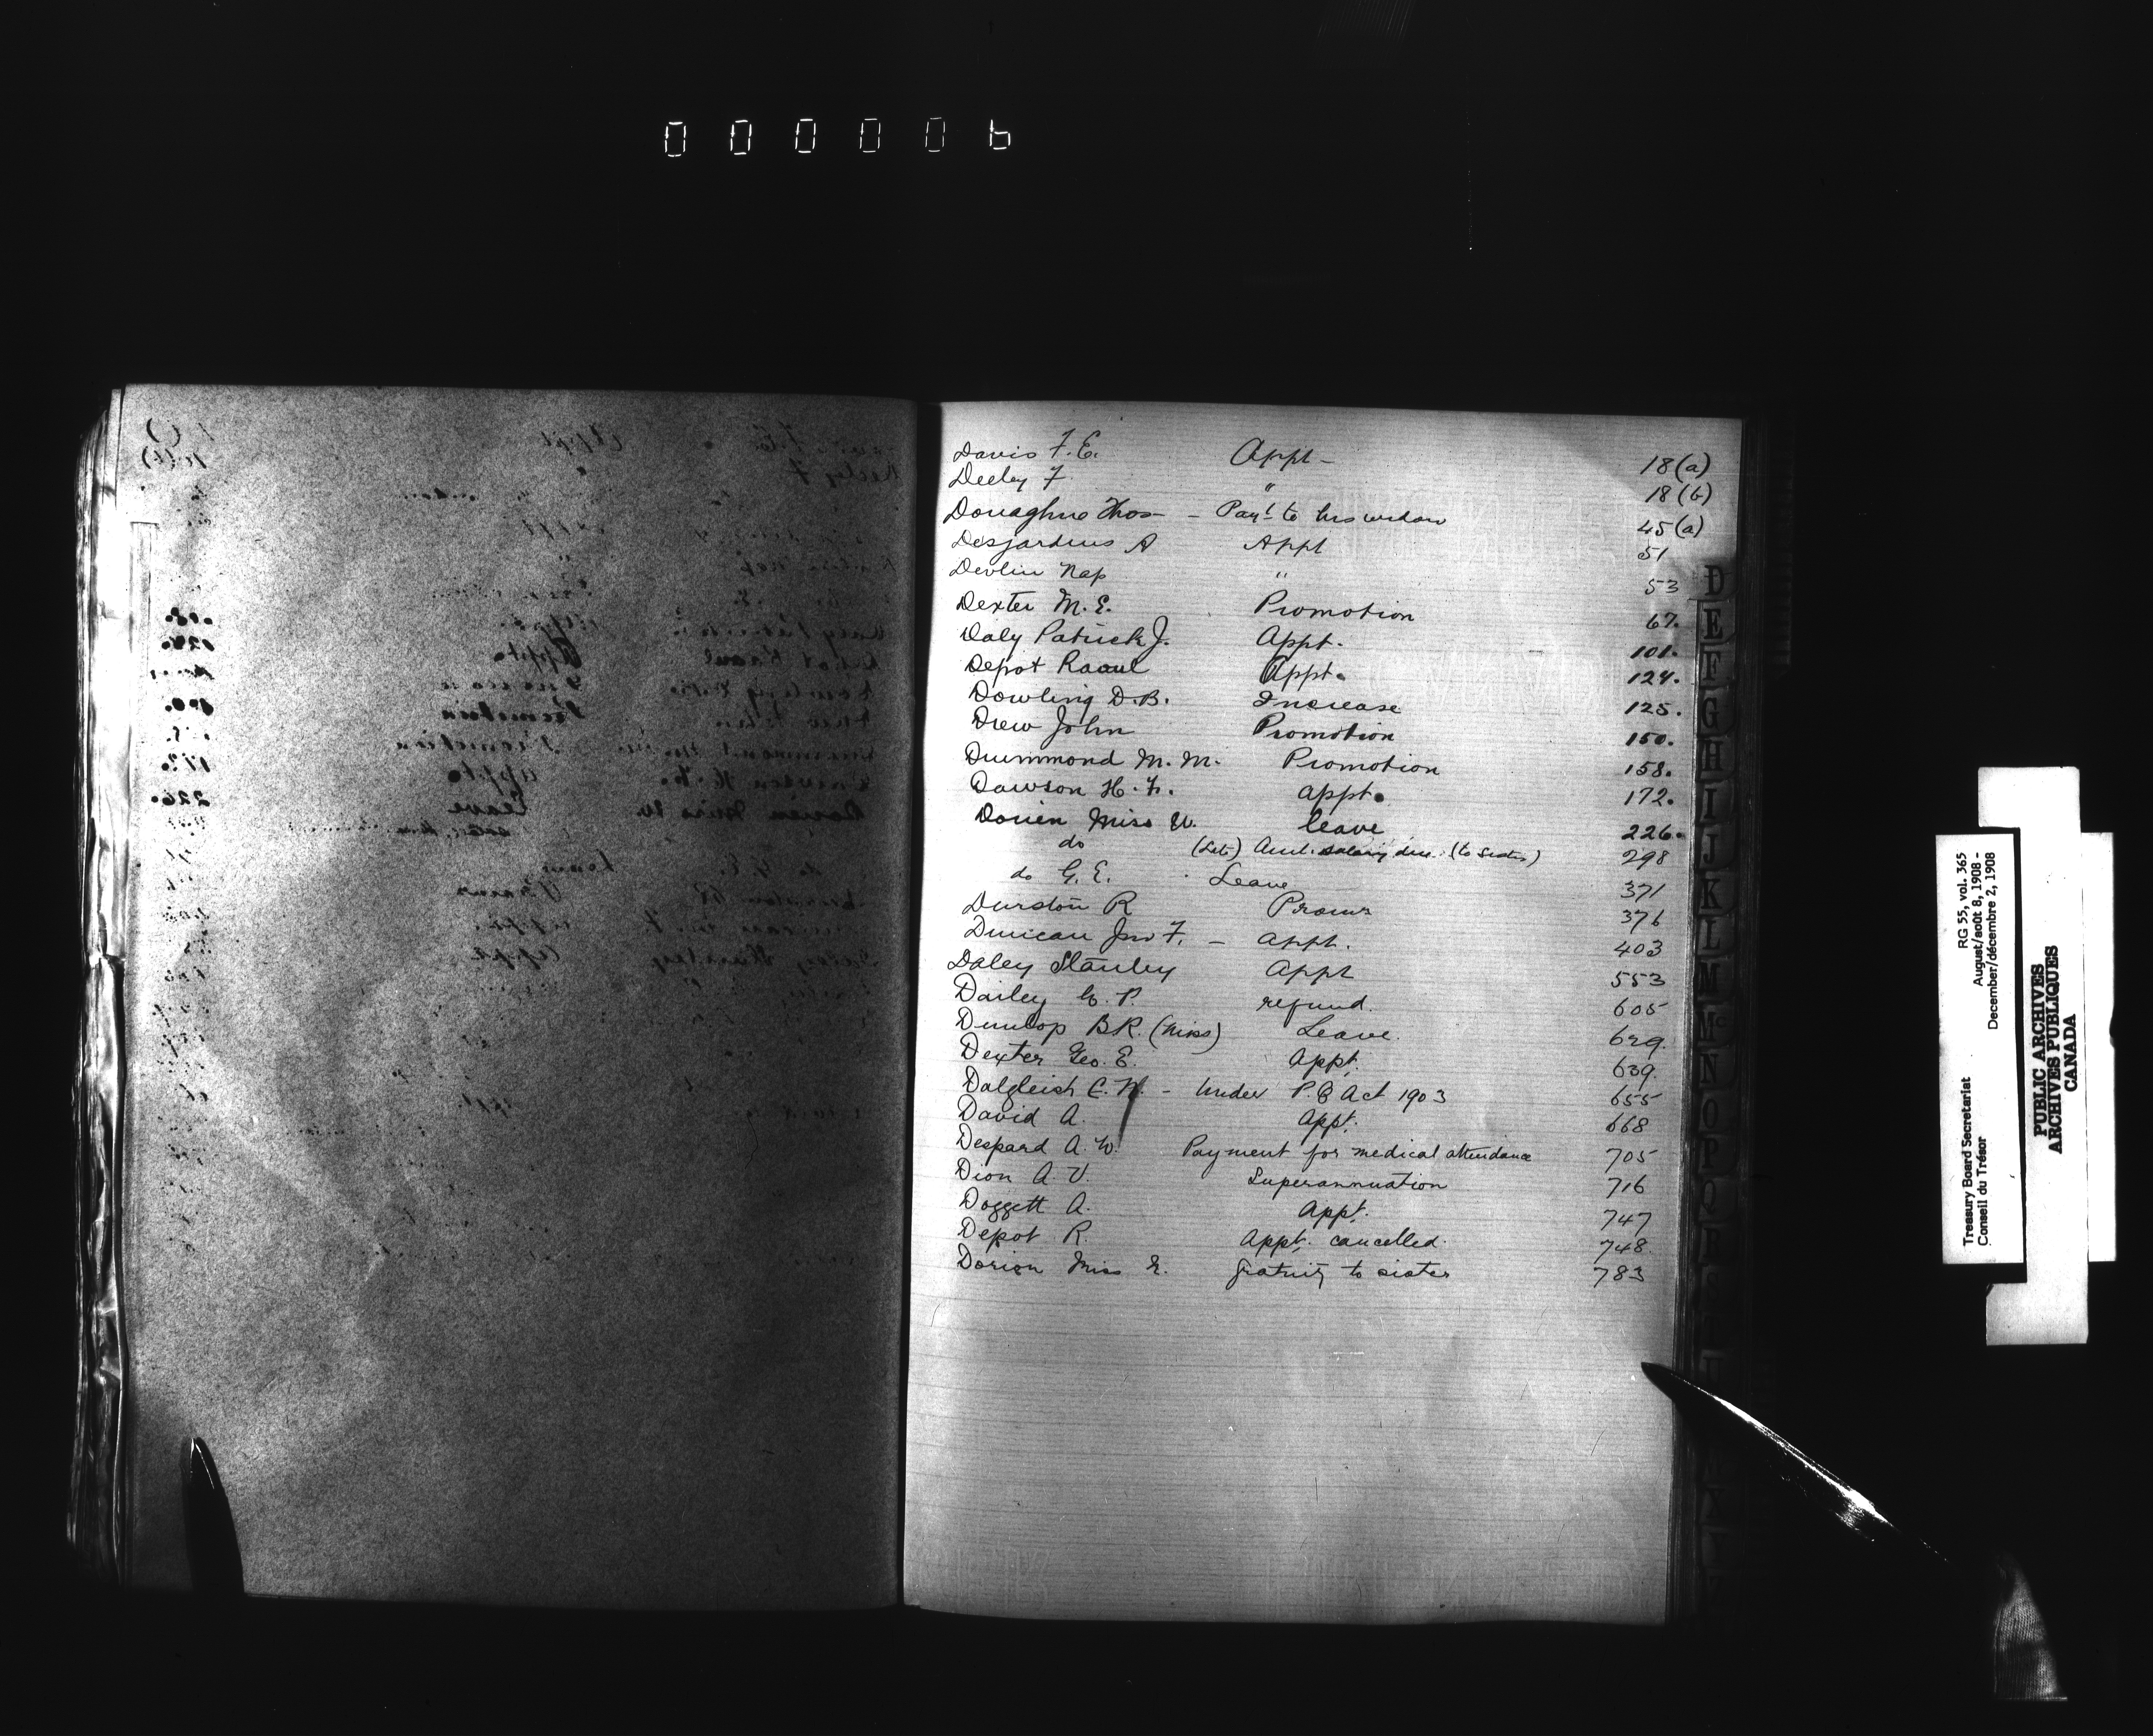 000006
Davis F. E. Appt - 18(a)
Deeley F " 18(b)
Donaghue Thos - Payt to his widow 45(a)
Desjardins A Appt 51
Devlin Nap " 53
Dexter M. E. Promotion 67.
Daly Patrick J. Appt. 101.
Depot Raoul Appt. 124.
Dowling D. B. Increase 125.
Drew John Promotion 150.
Drummond M. M. Promotion 158.
Dawson H. F. appt. 172.
Dorien Miss leave 226.
do (Late) salary due (to Sister) 298
do G. E. Leave 371
Durston R 376
Duncan Jno F. - appt. 403
Daley Stanley Appt 553
Dailey G. P. refund. 605
Dunlop B R. (Miss) Leave. 629.
Dexter Geo. E. Appt. 639.
Dalgleish C. W. - Under P. B Act 1903 655
David A. Appt. 668
Despard A. W. Payment for medical attendance 705
Dion A. V. Superannuation 716
Doggett A. Appt. 747
Depot R. Appt. cancelled. 748
Dorion Miss gratuity to sister 783
D
E
F
G
H
I
J
K
L
M
Mc
N
O
P
Q
RG 55, vol. 365
August/août 8, 1908 -
December/décembre 2, 1908
Treasury Board Secretariat
Conseil du Trésor
PUBLIC ARCHIVES
ARCHIVES PUBLIQUES
CANADA